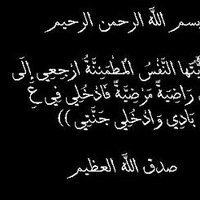 بسم اللّه الرحمن الرحيم
يَّتُهَا النَّفْسُ الْمُطْمَئِنَّةُ ارْجِعِي إِلَى
رَاضِيَةً مَّرْضِيَّةً فَادْخُلِي فِي عِ
بَادِي وَادْخُلِي جَنَّتِي ))
صدق اللّه العظيم